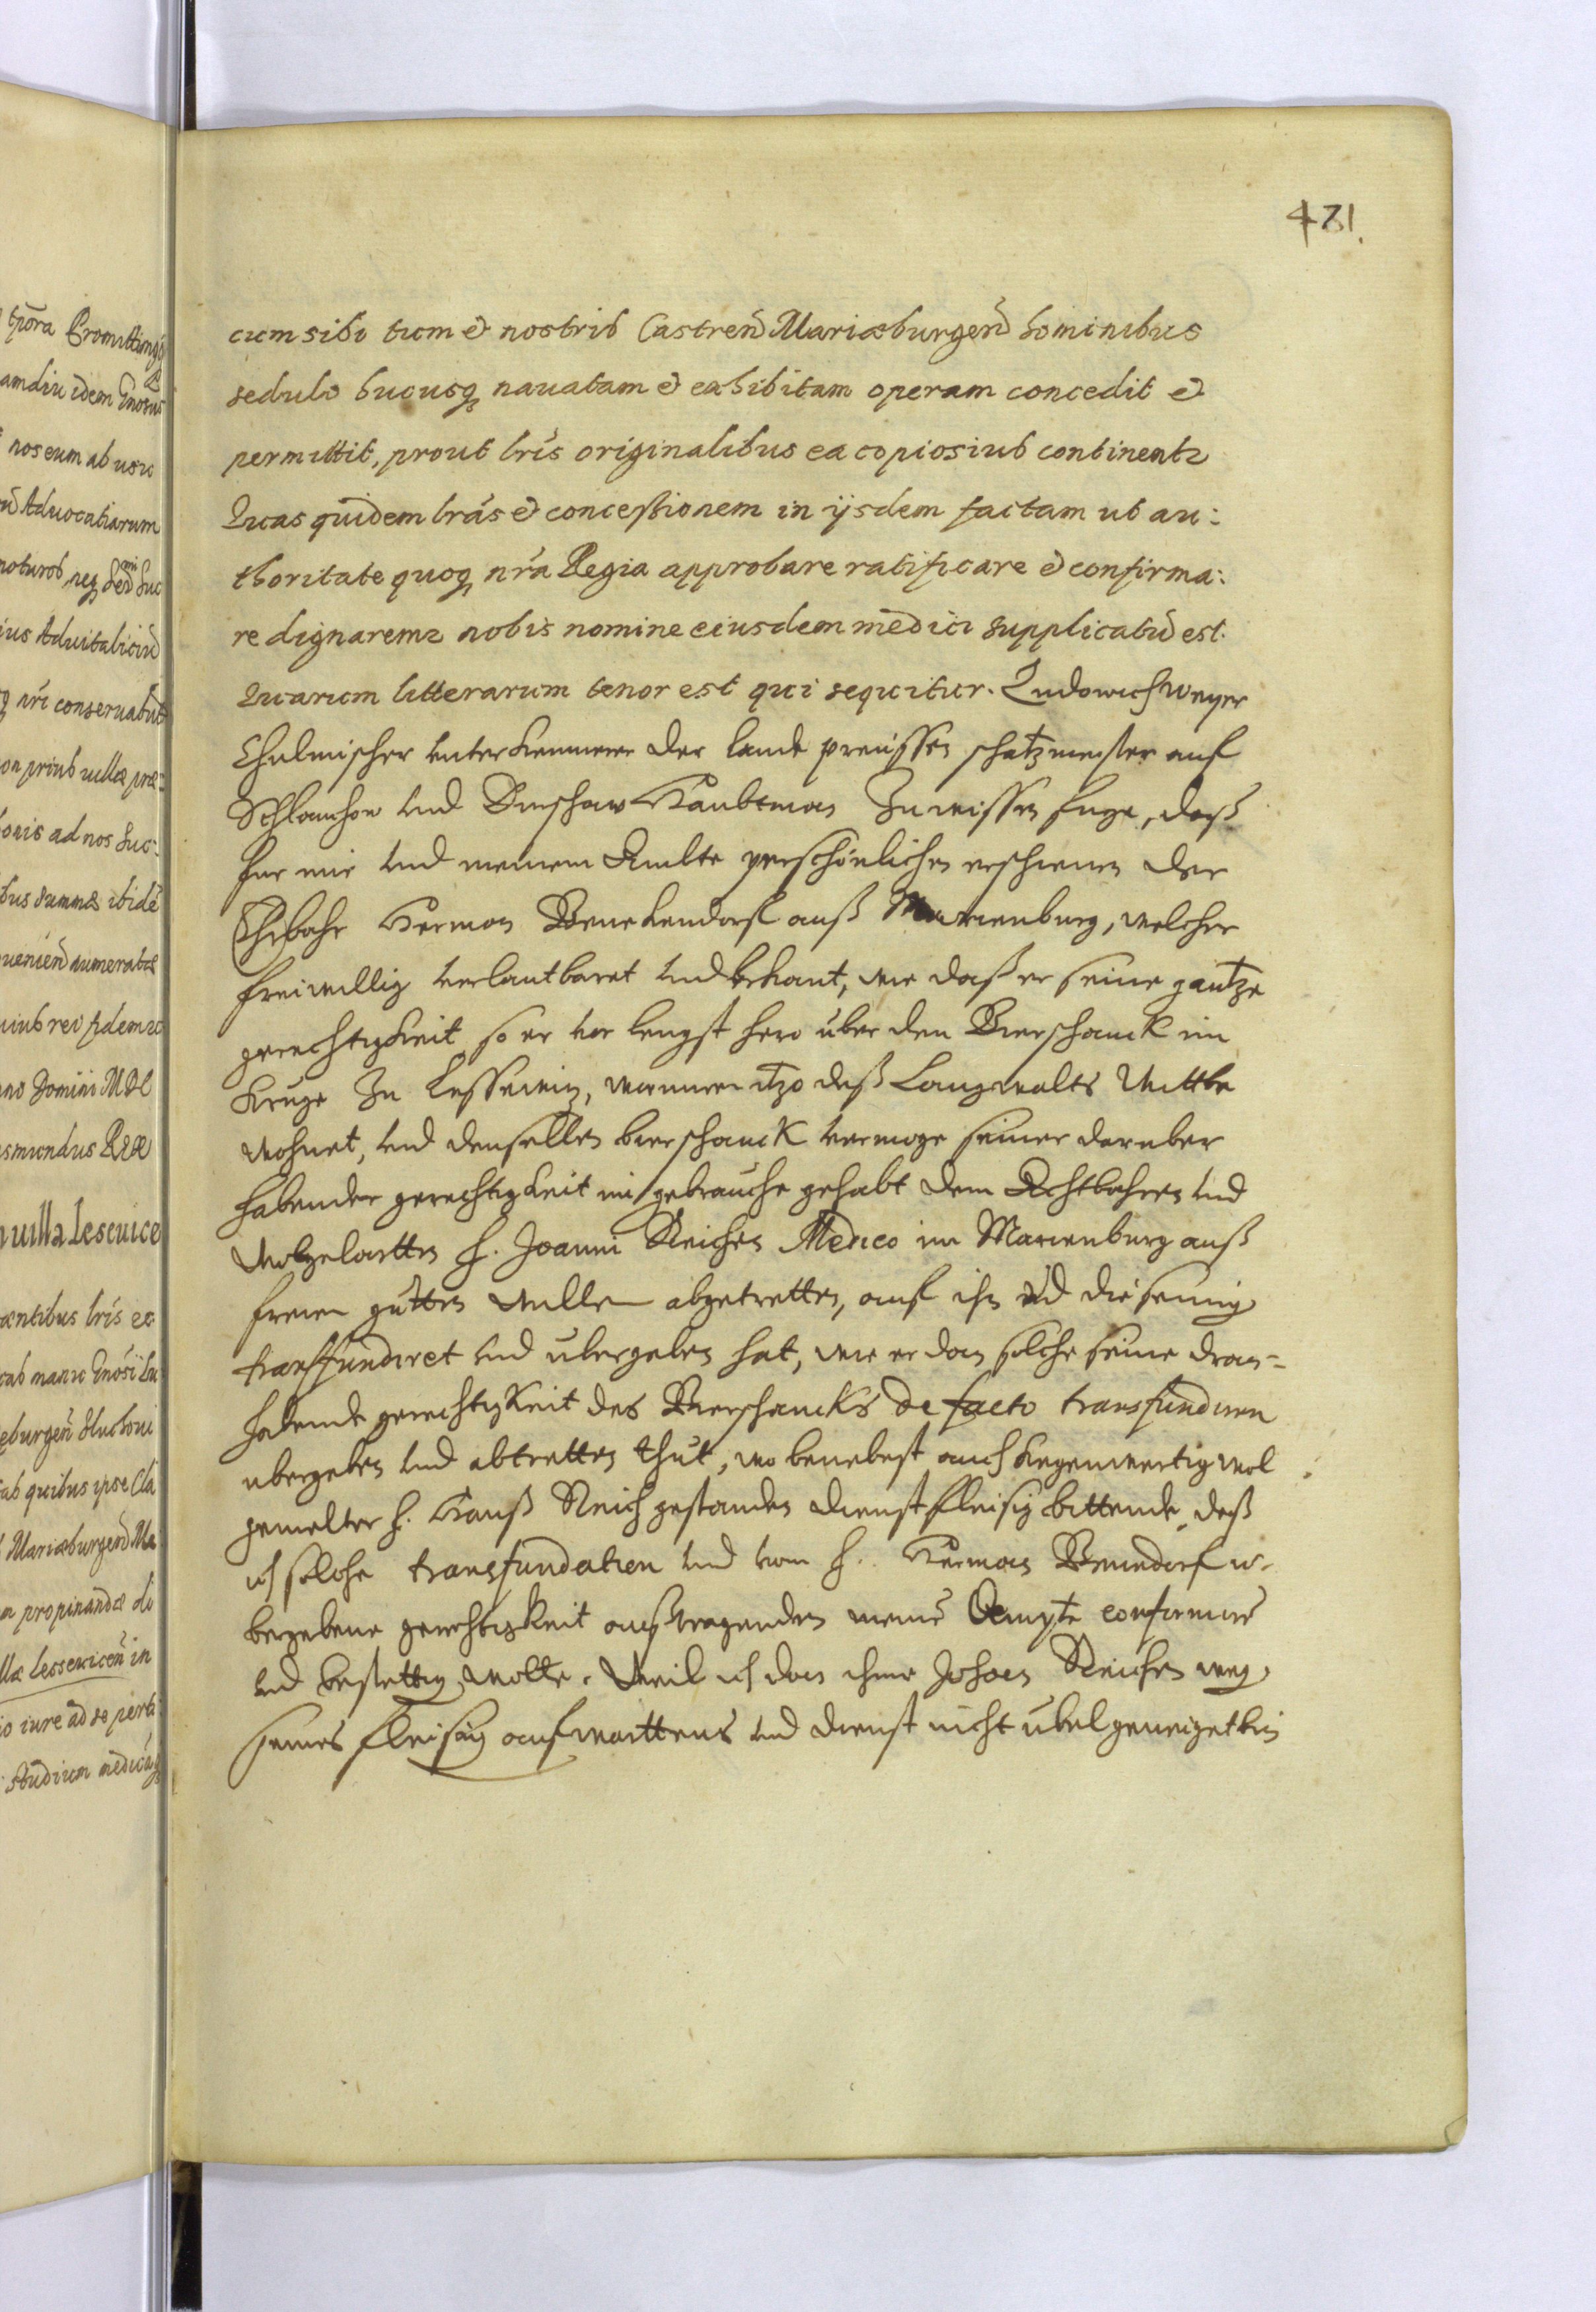 481.
cum sibi tum et nostris Castren Mariaeburgen hominibus
sedulo hucusq navatam et exhibitam operam concedit et
permittit, prout lris originalibus ea copiosius continentr
Quas quidem lras et concessionem in ijsdem factam ut au:
thoritate quoq nra Regia approbare ratificare et confirma:
re dignaremr nobis nomine eiusdem medici supplicatu est.
Quarum litterarum tenor est qui sequitur. Ludowich Weyer
Chulmischer unterkemmerer der lande preüssen schatzmeister auf
Schlauchow und Dirschaw Haubtman Zu wissen fuge, daß
fur mir und meinem Ambte perschönlichen erschienen der
Ehrbahr Herman Benekendorf auß Marienburg, welcher
freiwillig verlautbaret und bekant, wie daß er seine gantze
gerechtigkeit so er vor lengst hero über den Bierschanck im
Kruge Zu Lessewitz, worinnen itzo deß Langwalts Wittbe
wohnet, und denselben bierschanck vermoge seiner daruber
habender gerechtigkeit im gebrauche gehabt dem Achtbahren und
Wolgelartten H. Joanni Reichen Medico im Marienburg auß
freien gutten Willen abgetretten, auf ihn und die seinig
transfundiret und ubergeben hat, wie er dan solche seine dran=
habende gerechtigkeit des Bierschancks de facto transfundiren
ubergeben und abtretten thut, wo benebest auch kegenwertig wol
gemelter H. Hanß Reich gestanden dienstfleisig bittende, daß
ich solche transfundation und vom H. Herman Benendorf u-
bergebene gerechtigkeit auß tragenden meine Ampte confirmire
und bestettig wolte. Weil ich dan ihme Johan Reichen weg
seines fleisig aufwarttens und dienst nicht übel geneiget bin
tpora Promitting
amdiu idem Gnosus
nos eum ab usu
Advocatiarum
moturos neq
ius Advitaliciu
nri conservabut
on prius ullae prae:
ad nos Suc:
bus summes ibide
numeratae
rei fidem
no Domini MDL
smundus Rex
villa Lescuice
entibus lris ex
manu Gnosi
eburgen
ab quibus ipse
Mariaeburgen Me
propinandae
llae Lessewicen in
iure ad se
studium